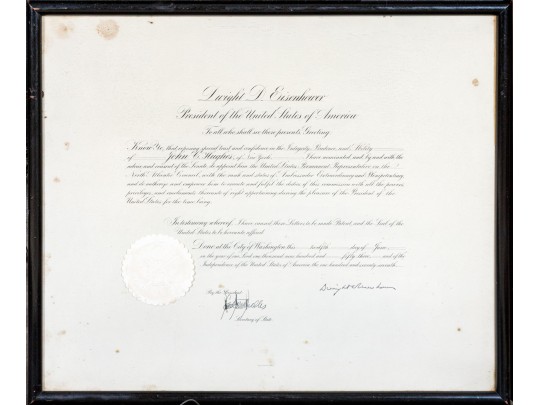 Dwight D. Eisenhower
President of the United States of America
To all who shall see these presents, Greeting:
Know Ye, that reposing special trust and confidence in the Integrity, Prudence, and Ability
of John C. Hughes, of New York I have nominated, and, by and with the
advice and consent of the Senate, do appoint him the United States Permanent Representative on the
North Atlantic Council, with the rank and status of Ambassador Extraordinary and Plenipotentiary,
and do authorize and empower him to execute and fulfil the duties of this commission with all the powers,
privileges, and emoluments thereunto of right appertaining during the pleasure of the President of the
United States for the time being.
In testimony whereof, I have caused these Letters to be made Patent, and the Seal of the
United States to be hereunto affixed.
Done at the City of Washington this day of June
in the year of our Lord one thousand nine hundred and fifty-three, and of the
Independence of the United States of America the one hundred and seventy-seventh.
By the President:
Dwight D. Eisenhower
Secretary of State